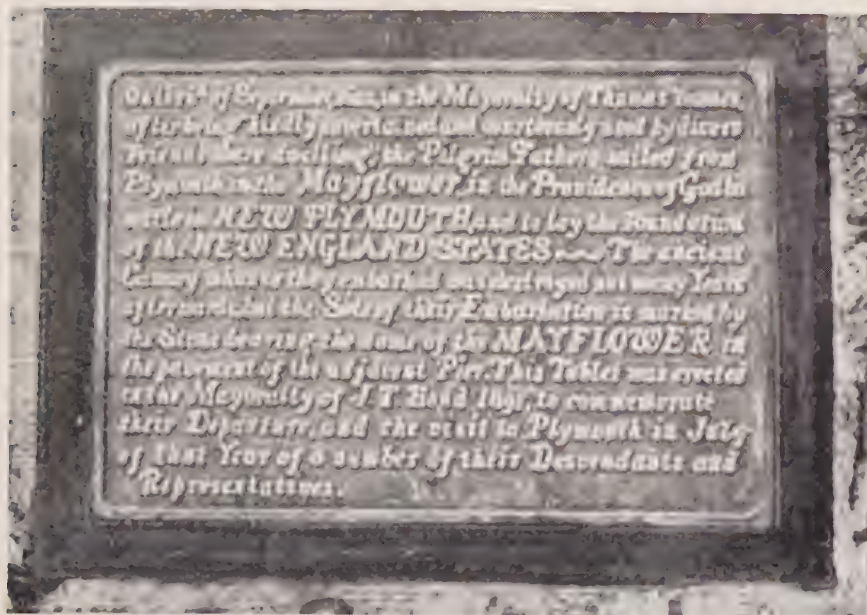 On the 6th of September, 1620, in the Mayoralty of Thomas Townes
after being kindly entertained and courteously used by divers
Friends there dwelling, the Pilgrim Fathers sailed from
Plymouth in the Mayflower, in the Providence of God to
settle in NEW PLYMOUTH, and to lay the Foundation
of the NEW ENGLAND STATES The ancient
Cawsey whence they embarked was destroyed not many Years
afterwards, but the Site of their Embarkation is marked by
the Stone bearing the name of the MAYFLOWER in
the pavement of the adjacent Pier. This Tablet was erected
in the Mayoralty of J. T. Bond 1891, to commemorate
their Departure, and the visit to Plymouth in July
of that Year of a number of their Descendants and
Representatives.